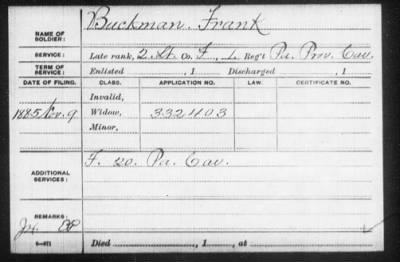 Buckman, Frank
NAME OF SOLDIER:
SERVICE: Late rank, 2 Lt Co. F, 2 Reg't Pa. Prov. Cav.
TERM OF SERVICE: Enlisted , 1 Discharged , 1
DATE OF FILING. CLASS. APPLICATION NO. LAW. CERTIFICATE NO.
Invalid,
1885 Nov. 9 Widow, 332403
Minor,
F. 20. Pa. Cav.
ADDITIONAL SERVICES:
REMARKS:
Died , 1 , at